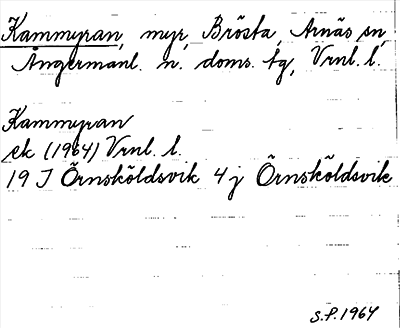 Kammyran, myr, Brösta, Arnäs sn,
Ångermanl. n. doms. tg, Vrnl. l.
Kammyran
ek (1964) Vrnl. l.
19 J Örnsköldsvik 4 j Örnsköldsvik
S.P. 1964